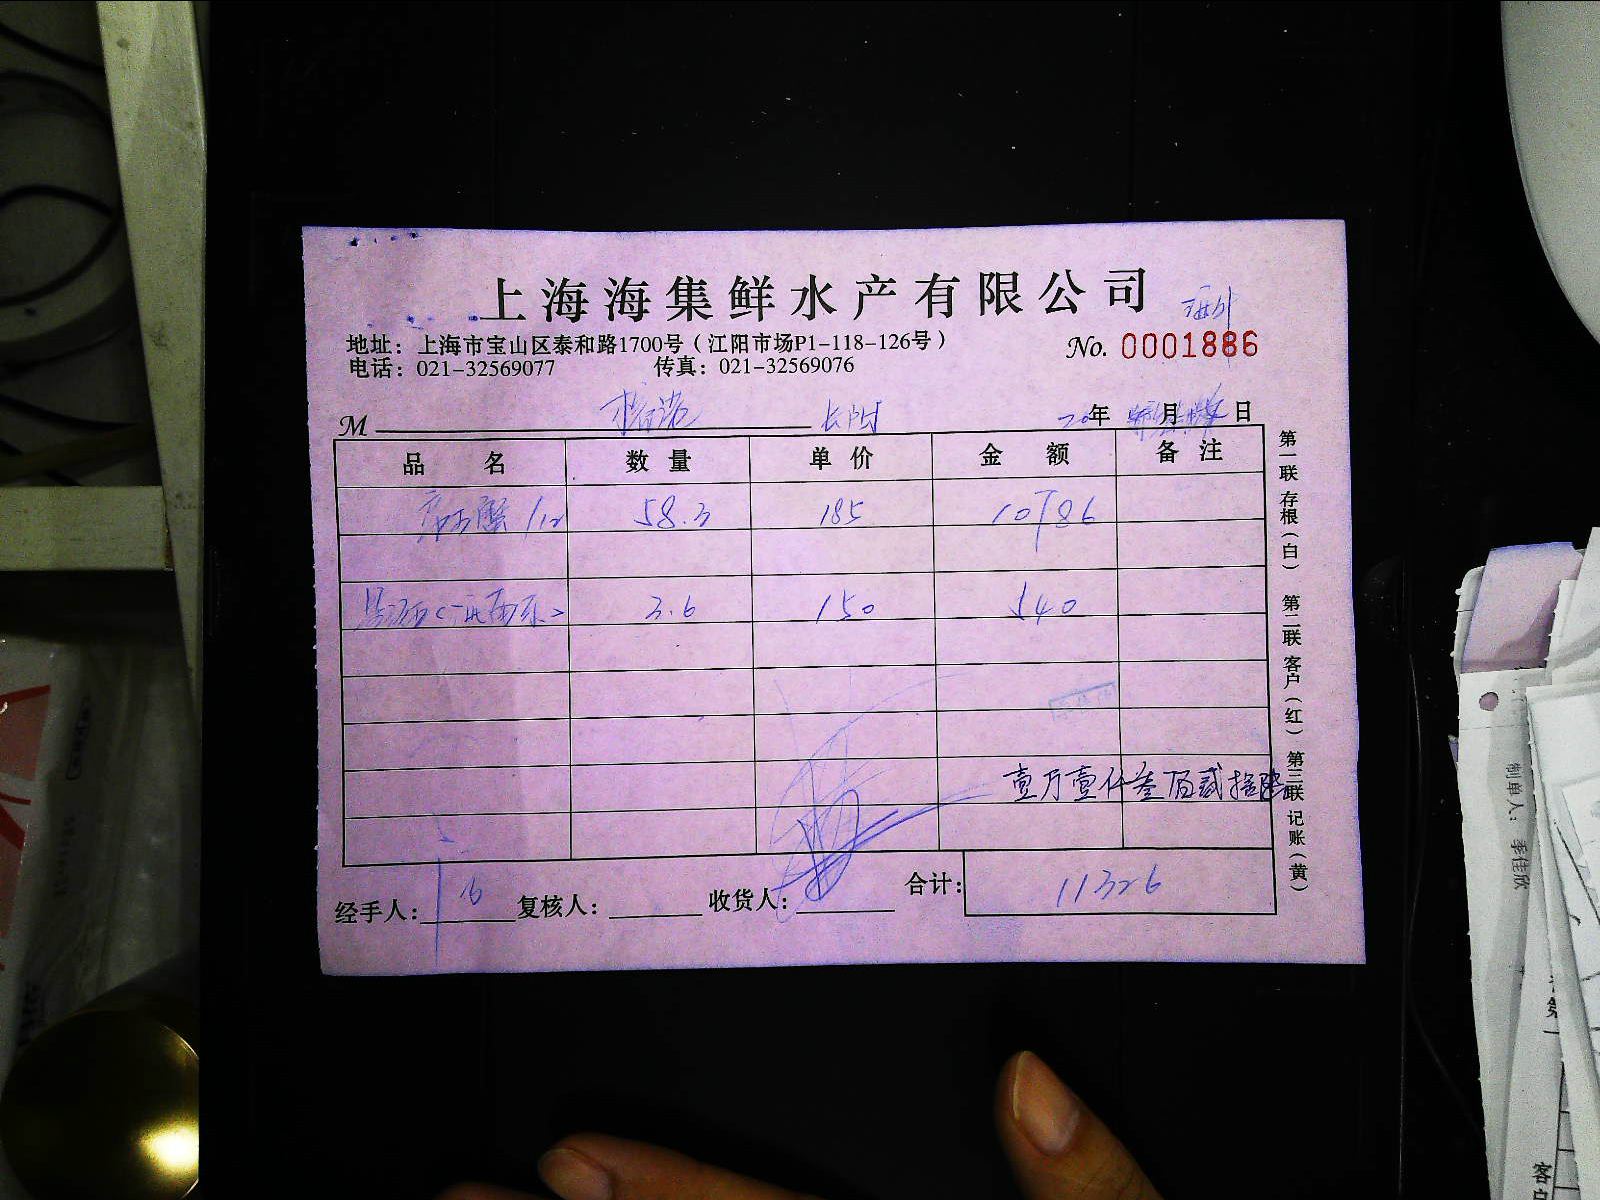 上海海集鲜水产有限公司
地址：上海市宝山区泰和路1700号（江阳市场P1-118-126号）
No. 0001886
电话：021-32569077 传真：021-32569076
M 20年 月 日
品名 数量 单价 金额 备注
蟹 58.3 185 10786
3.6 150 540
壹万壹仟叁佰贰拾陆
合计： 11326
经手人： 复核人： 收货人：
第一联 存根（白） 第二联 客户（红） 第三联 记账（黄）
制单人： 季佳欣